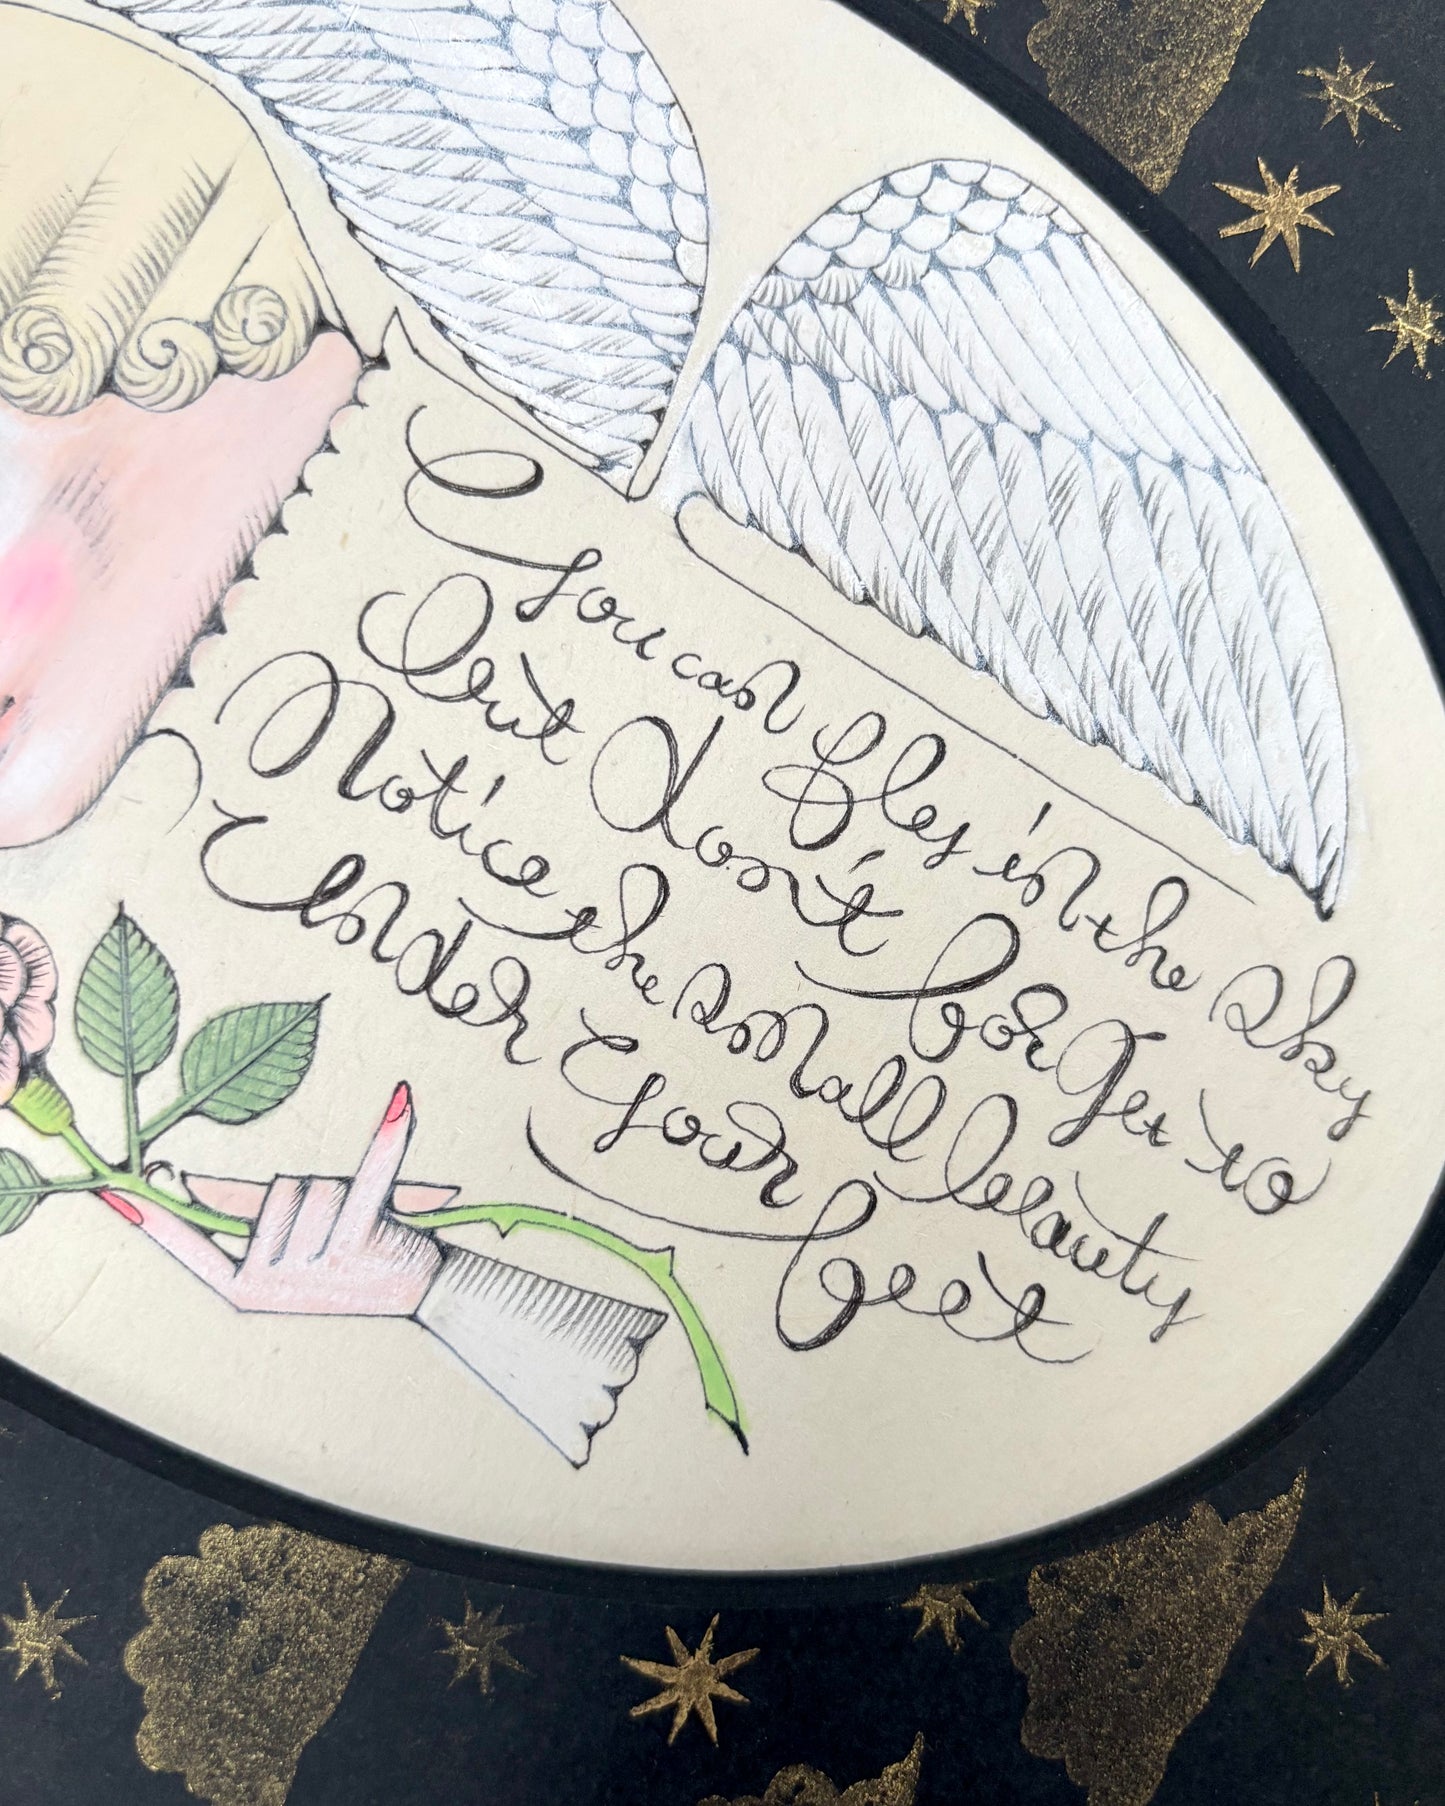 You can fley in the sky
but don't forget to
Notice the small beauty
Under your feet